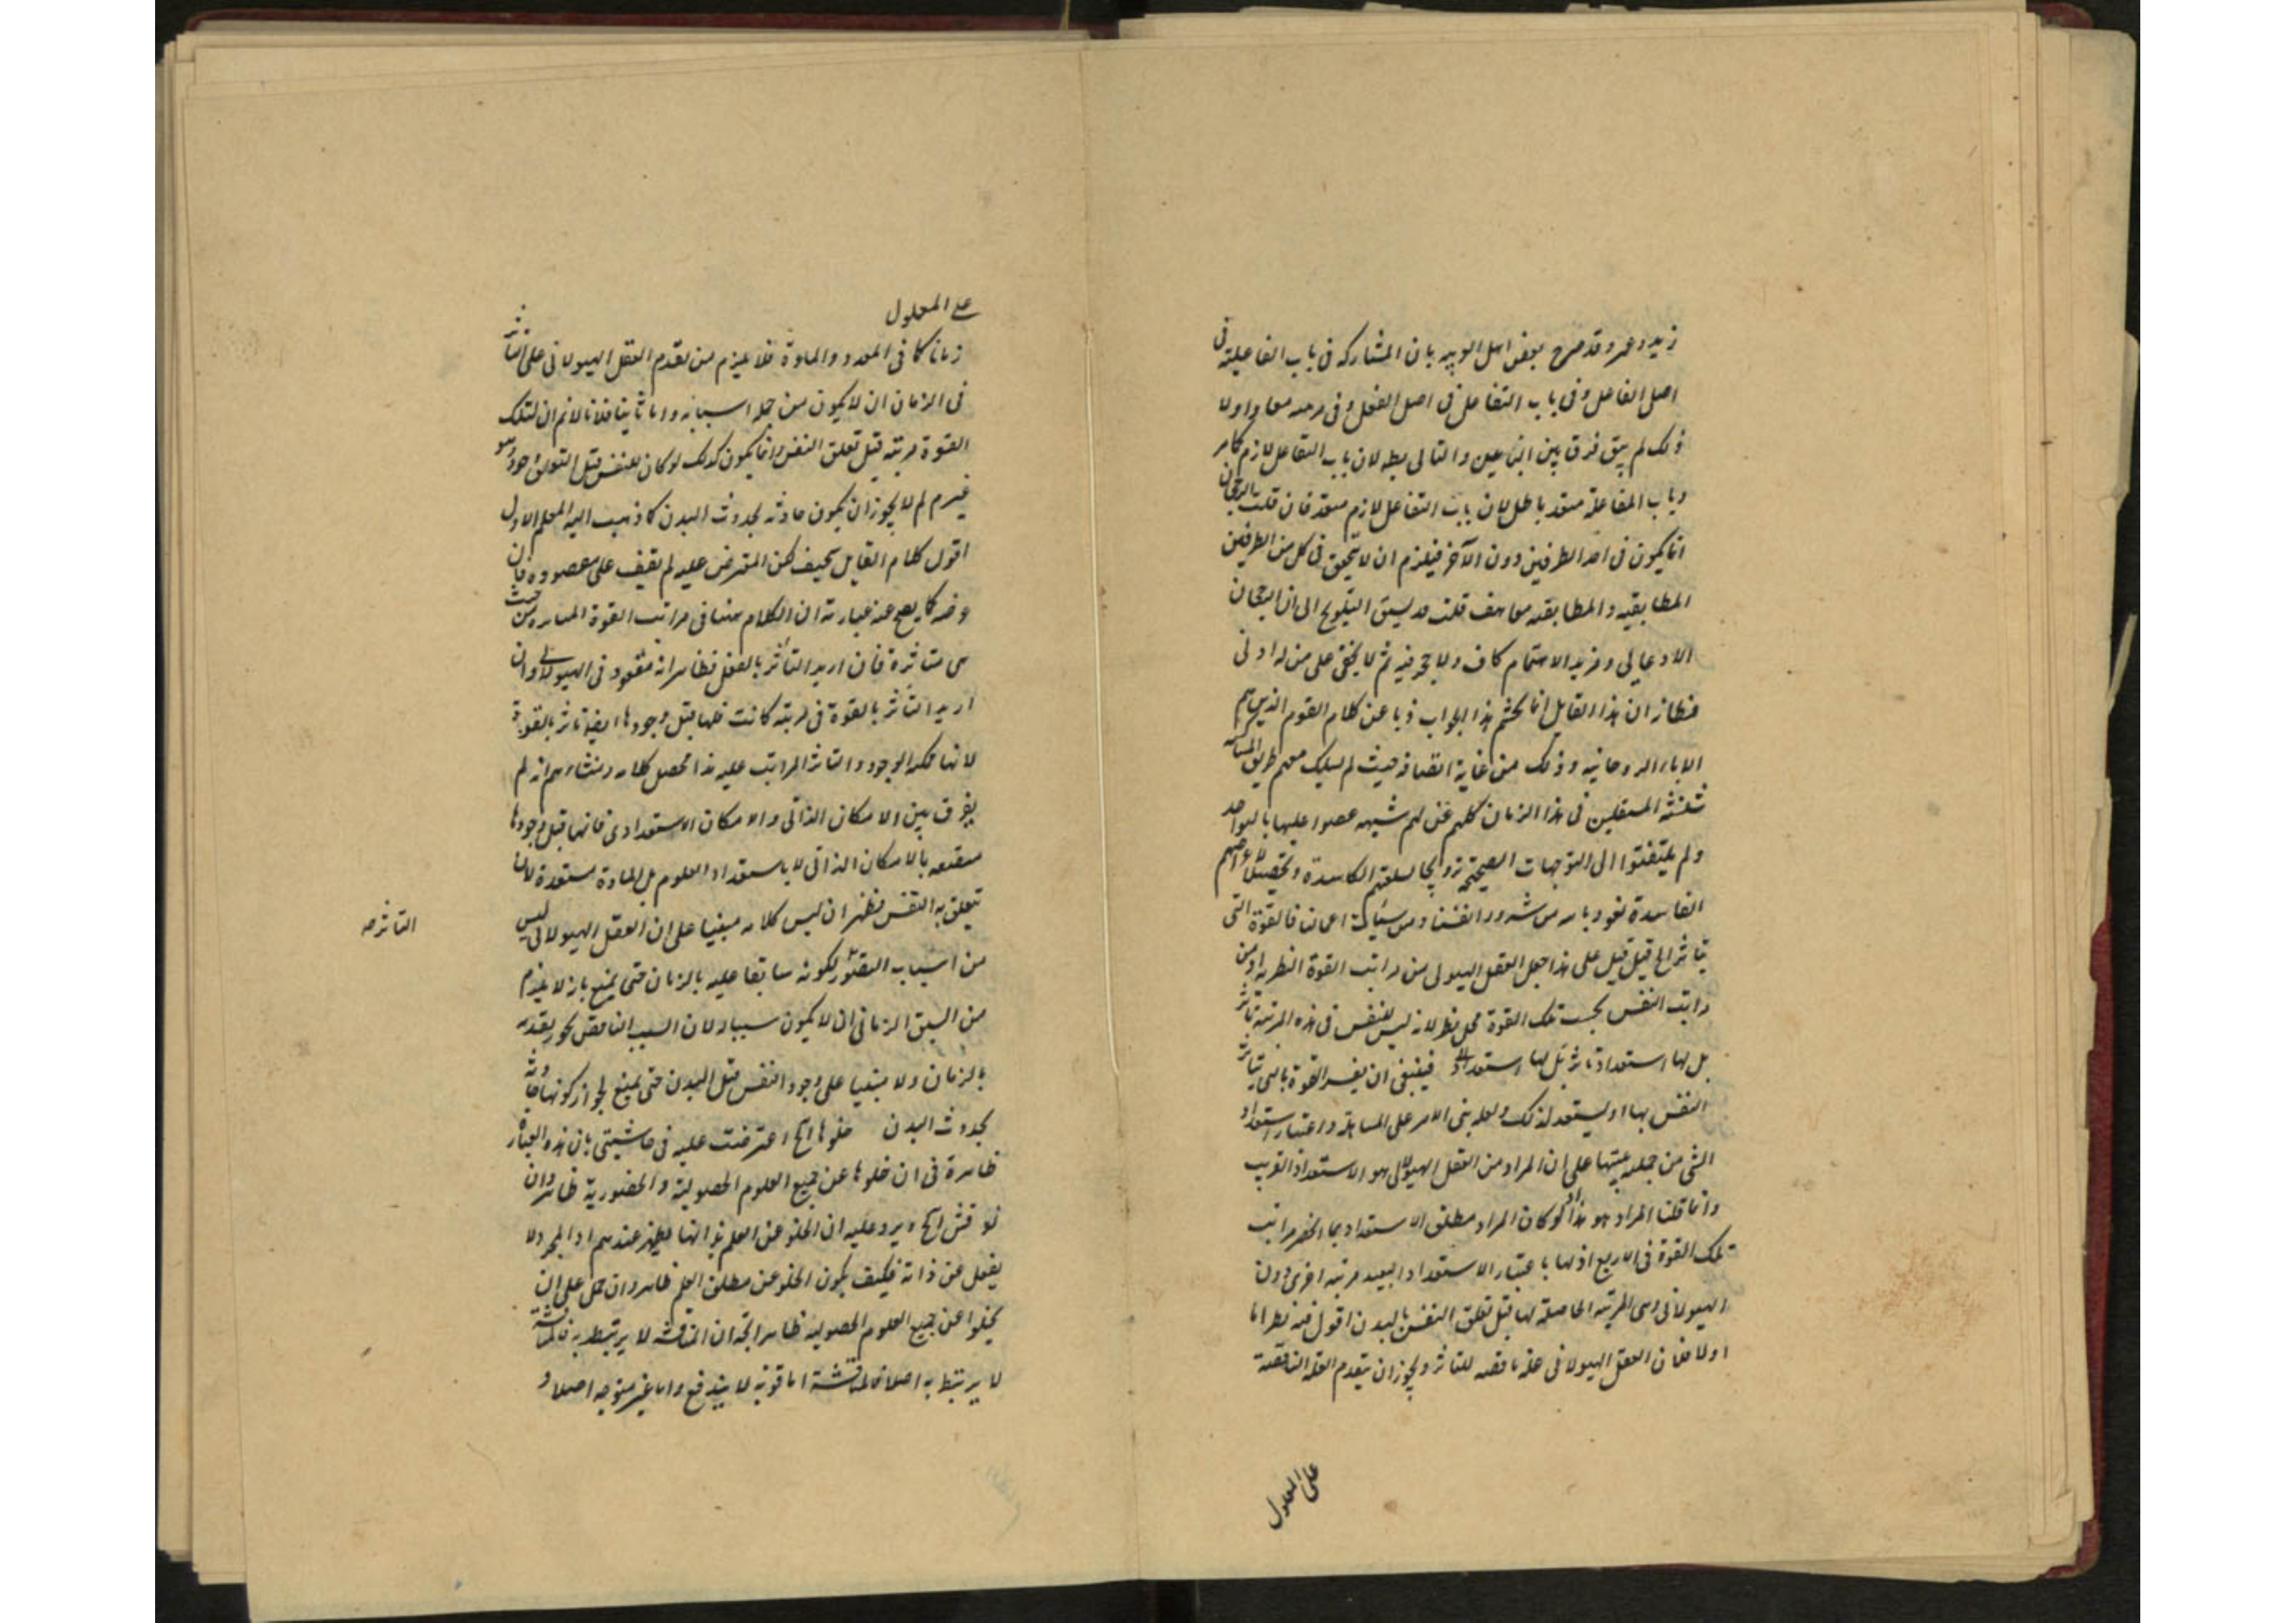 زيد وعمرو قد صرح بعض اهل العربيه بان المشاركه فى باب الفاعلية فى
اصل الفاعل وفى باب التفاعل فى اصل الفعل وفى معا ولولا
ذلك لم يبق فرق بين البابين والتالى بط لان باب التفاعل لازم كامر
وباب المفاعلة متعد باطل لان باب التفاعل لازم متعد فان قلت الرجحان
انما يكون فى احد الطرفين دون الآخر فيلزم ان لا يتحقق فى كل من الطرفين
المطابقيه والمطابقه معا هف قلت قد سبق التلويح الى ان الرجحان
الادعايى ومزيد الاهتمام كاف ولا حجر فيه ثم لا يخفى على من له ادنى
ان هذا القايل انما تجشم هذا الجواب ذبا عن كلام القوم الذين هم
الاباء الروحانيه وذلك من غاية انصافه حيث لم يسلك معهم طريق
المستقلين فى هذا الزمان كلهم عن لهم شبهه عضوا عليها بالنواجد
ولم يلتفتوا الى التوجهات الصحيحة ترويجا لسلعتهم الكاسدة وتحصيلا لاغراضهم
الفاسدة نعوذ بالله من شرور انفسنا ومن سيئات اعمالنا فالقوة التى
يتاثر الخ قيل قيل على هذا جعل العقل الهيولى من مراتب القوة النظريه او من
مراتب النفس بحسب تلك القوة محل نظر لانه ليس للنفس فى هذه المرتبة تاثر
بل لها استعداد تاثر بل لها استعداد فينبغى ان يفسر القوة بالتى يتاثر
النفس بها او يستعد لذلك ولعله بنى الامر على المسامحة واعتبار استعداد
الشى من جملته على ان المراد من العقل الهيولانى هو الاستعداد القريب
وانما قلنا المراد هو هذا اذ لو كان المراد مطلق الاستعداد لما انحصر مراتب
تلك القوة فى الاربع اذ لها باعتبار الاستعداد البعيد مرتبه اخرى دون
الهيولانى وهى المرتبه الحاصله لها قبل تعلق النفس بالبدن اقول فيه نظر اما
اولا فلان العقل الهيولانى علة ناقصه للتاثر ويجوز ان يتقدم العلة الناقصة
على المعلول
على المعلول
زمانا كما فى المعد والمادة فلا يلزم من تقدم العقل الهيولانى على التاثر
فى الزمان ان لا يكون من جملة اسبابه واما ثانيا فلانا لانم ان لتلك
القوة مرتبه قبل تعلق النفس وانما يكون كذلك لو كان للنفس قبل التعلق وجود وهو
غير م لم لا يجوز ان يكون حادثه بحدوث البدن كما ذهب اليه المعلم الاول
اقول كلام القايل سخيف لكن المتعرض عليه لم يقف على مقصوده فان
غرضه كما يفصح عنه عبارته ان الكلام هنا فى مراتب القوة من حيث
هى متاثرة فان اريد التأثر بالفعل فظاهر انه مفقود فى الهيولانى وان
اريد التأثر بالقوة فى مرتبه كانت فلها قبل وجودها ايضا تاثر بالقوة
لانها ممكنه الوجود والتاثر المراتب عليه هذا محصل كلامه ومنشاءه انه لم
يفرق بين الامكان الذاتى والامكان الاستعدادى فانها قبل وجودها
متصفه بالامكان الذاتى لا باستعداد العلوم بل المادة مستعدة لان
يتعلق به النفس فظهر ان ليس كلامه مبنيا على ان العقل الهيولانى ليس
التاثر صح
من اسباب التاثر لكونه سابقا عليه بالزمان حتى يمنع بانه لا يلزم
من السبق الزمانى ان لا يكون سببا ولان السبب الناقص يجوز تقدمه
بالزمان ولا مبنيا على وجود النفس قبل البدن حتى يمنع لجواز كونها حادثه
بحدوث البدن خلوها الخ اعترضت عليه فى حاشيتى بان هذه العبارة
ظاهرة فى ان خلوها عن جميع العلوم الحصولية والحضورية ظاهر وان
نوقش الخ ه يرد عليه ان الخلو عن العلم بذاتها لم يظهر عندهم اذ المجرد لا
يغفل عن ذاته فكيف يكون الخلو عن مطلق العلم ظاهرا وان حمل على ان
يخلوا عن جميع العلوم الحصوليه ظاهر اتجه ان المناقشه لا يرتبط به فالمناقشة
لا يرتبط به اصلا فالمناقشة اما قويه لا يندفع واما غير متوجه اصلا و